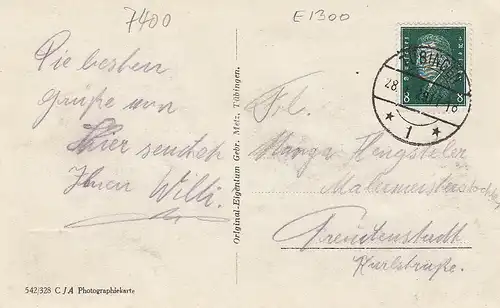 7400
E1300
Die besten
Grüße von
hier sendet
Ihnen Willi.
Original-Eigentum Gebr. Metz, Tübingen.
TÜBINGEN
28.
8
8
* 1 *
Frl.
Hengsteler
Malermeisterstochter
Freudenstadt
Karlstraße.
542/328 C J A Photographiekarte